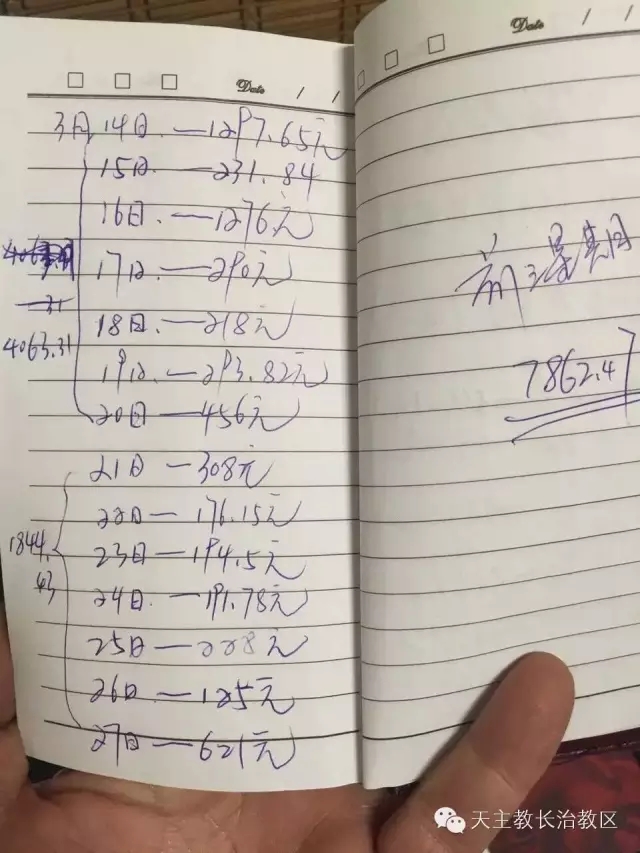 Date / /
3月14日—1297.65元
15日—231.84
16日—1276元
17日—290元
18日—218元
4063.31
19日—293.82元
20日—456元
21日—308元
22日—176.15元
1844.43
23日—194.5元
24日—191.78元
25日—228元
26日—125元
27日—621元
Date / /
前3星期
7862.47
天主教长治教区